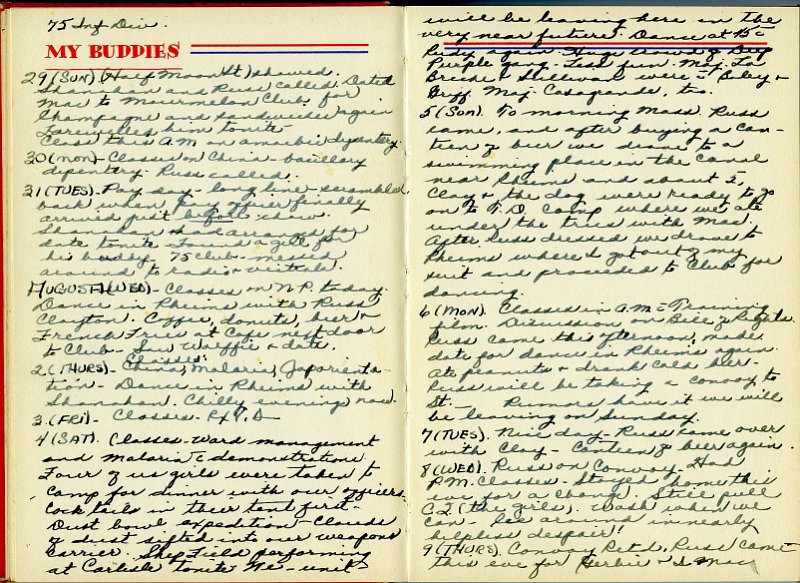 75 Inf Div.
MY BUDDIES
29 (SUN) (Half Moon St) showed.
Shanahan and Russ called. Dated
Mac to Mourmelon Club for
Champagne and sandwiches again
Farewelled him tonite.
Class this A.M. on amoebic dysentery.
30 (MON) - Classes on China - bacillary
dysentery. Russ called.
31 (TUES). Pay day - long line - scrambled
back when pay officer finally
arrived just before chow.
Shanahan had arranged for
date tonite. Found a girl for
his buddy. 75 Club - messed
around to radio + victrola.
AUGUST 1 (WED) - Classes on N.P. today.
Dance in Rheims with Russ
Clayton. Coffee, donuts, beer +
French Fries at Cafe next door
to Club - + date.
Classes:
2. (THURS) - China, Malaria, Jap orienta-
tion - Dance in Rheims with
Shanahan. Chilly evening now.
3. (FRI) - Classes -
4 (SAT). Classes - Ward management
and malaria c demonstration.
Four of us girls were taken to
camp for dinner with our officers.
Cocktails in their tent first -
Dust bowl expedition - Clouds
of dust sifted into our weapons
carrier. Shep Field performing
at Carlisle tonite. Ne - unit
will be leaving here in the
very near future. Dance at
Rudy again. Huge crowd of Deep
Purple gang - Less fun. Maj. La
+ Sullivan were c +
Griff. Maj. Casagrande, too.
5 (SUN). To morning Mass. Russ
came, and after buying a can-
teen of beer we drove to a
swimming place in the canal
near Rheims and about 5,
Clay + the dog were ready to go
on to T.D. Camp where we ate
under the trees with Mac.
After Russ dressed we drove to
Rheims where I got out of my
suit and proceeded to Club for
dancing.
6 (MON). Classes in A.M. c Training
film. Discussion on Bill of Rights.
Russ came this afternoon, made
date for dance in Rheims again.
Ate peanuts + drank cold beer.
Russ will be taking a convoy to
St. Rumors have it we will
be leaving on Sunday.
7 (TUES). Nice day - Russ came over
with Clay - Canteen of beer again.
8 (WED). Russ on Convoy. Had
P.M. Classes - Stayed home this
eve for a change. Still pull
C.Q. (the girls). Wash when we
can - Lie around in nearly
helpless despair!
9 (THURS). Convoy Ret'd. Russ came
this eve for Herbie + I. Mac